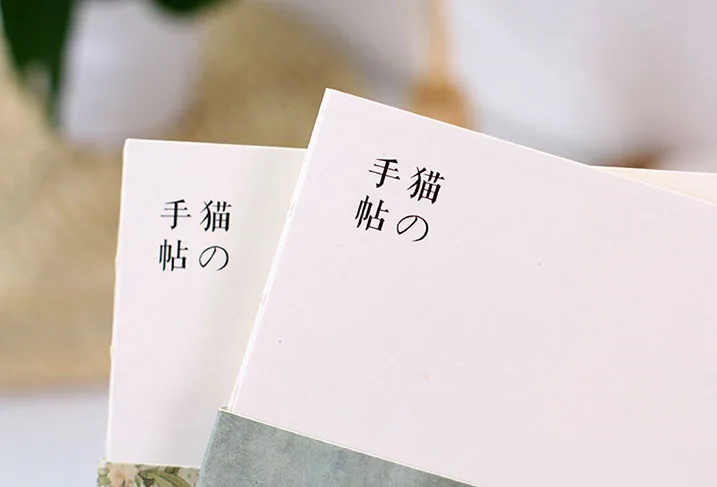 猫の
手帖
猫の
手帖